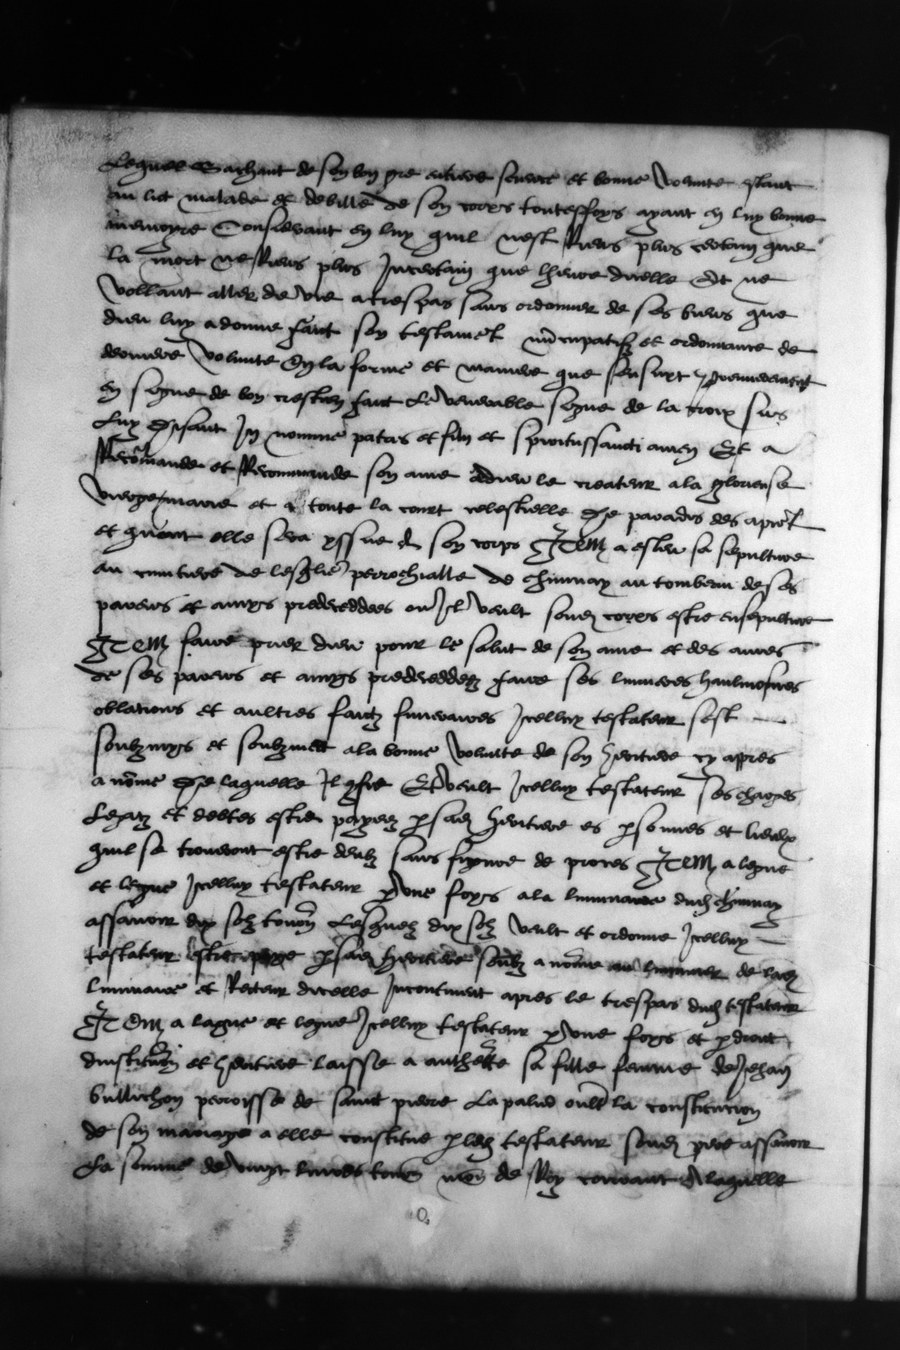 Lequel Sachant de son bon gre entiere science et bonne volunte estant
au lict malade et debilite de son corps touteffoys ayant en luy bonne
memoyre Considerant en luy quil nest Riens plus certain que
la mort ne Riens plus Incertain que lheure dicelle Et ne
vollant aller de vie a trespas sans ordonner de ses biens que
dieu luy a donne faict son testamet nucupatif et ordonnance de
derniere volunte En la forme et maniere que sensuyt premierement
En signe de bon crestien faict Le venerable signe de la croix sus
Luy Disant In nomine patris et filii et spiritussancti amen Et a
Recomande et Recommande son ame a dieu le createur a la glorieuse
vierge marie et a toute la court celestielle De paradis des apres
et quant elle sera yssue de son corps Item a esleu sa sepulture
au cimitiere de lesglise perrochialle de chimnay au tombeau de ses
parens et amys predeceddes ou Il veult sond corps estre ensepulture
Item faire prier dieu pour le salut de son ame et des ames
de ses parens et amys predeceddez faire ses lumieres haulmosnes
oblations et aultres faictz funeraires Icelluy testateur sest
soubzmys et soubzmect a la bonne volunte de son heritiere cy apres
a nome De laquelle Il confie Et veult Icelluy testateur ses charges
Legatz et debtes estre payez p sad heritiere es psonnes et lieulx
quil se trouveront estre deuz sans figure de proces Item a legue
et legue Icelluy testateur p une foys a la luminaire dud chimnay
assavoir dix solz tourn Lesquelz dix solz veult et ordonne Icelluy
testateur estre paye p sad heritiere soubz a nome au luminier de lad
luminaire et Recteur dicelle Incontinent apres le trespas dud testateur
Item a legue et legue Icelluy testateur p une foys et p droict
dinstitution et heritiere laisse a anthoette sa fille femme de Jehan
bullichon perroisse de sainct pierre La palud oultre la constitucion
de son mariage a elle constitue p led testateur sond pere assavoir
La somme de vingt livres tourn mon de Roy courant A laquelle